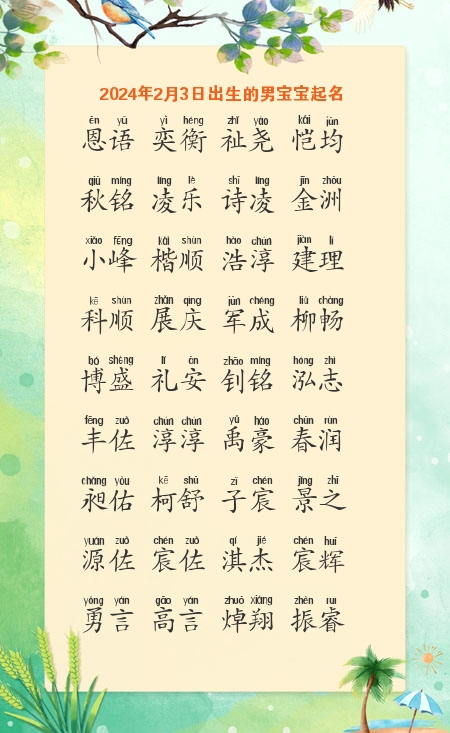 2024年2月3日出生的男宝宝起名
ēn yǔ yì héng zhǐ yáo kǎi jūn
恩语 奕衡 祉尧 恺均
qiū míng líng lè shī líng jīn zhōu
秋铭 凌乐 诗凌 金洲
xiǎo fēng kǎi shùn hào chún jiàn lǐ
小峰 楷顺 浩淳 建理
kē shùn zhǎn qìng jūn chéng liǔ chàng
科顺 展庆 军成 柳畅
bó shèng lǐ ān zhāo míng hóng zhì
博盛 礼安 钊铭 泓志
fēng zuǒ chún chún yǔ háo chūn rùn
丰佐 淳淳 禹豪 春润
chǎng yòu kē shū zǐ chén jǐng zhī
昶佑 柯舒 子宸 景之
yuán zuǒ chén zuǒ qí jié chén huī
源佐 宸佐 淇杰 宸辉
yǒng yán gāo yán zhuō xiáng zhèn ruì
勇言 高言 焯翔 振睿